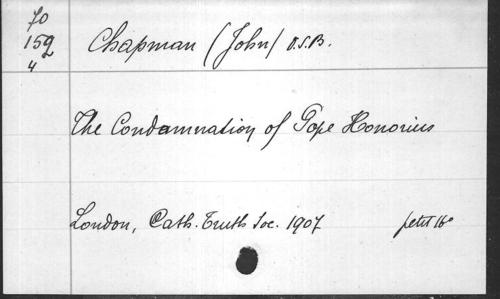 70
152
4
Chapman (John) O.S.B.
The Condamnation of Pope Honorius
London, Cath. Truth Soc. 1907 petit 16°